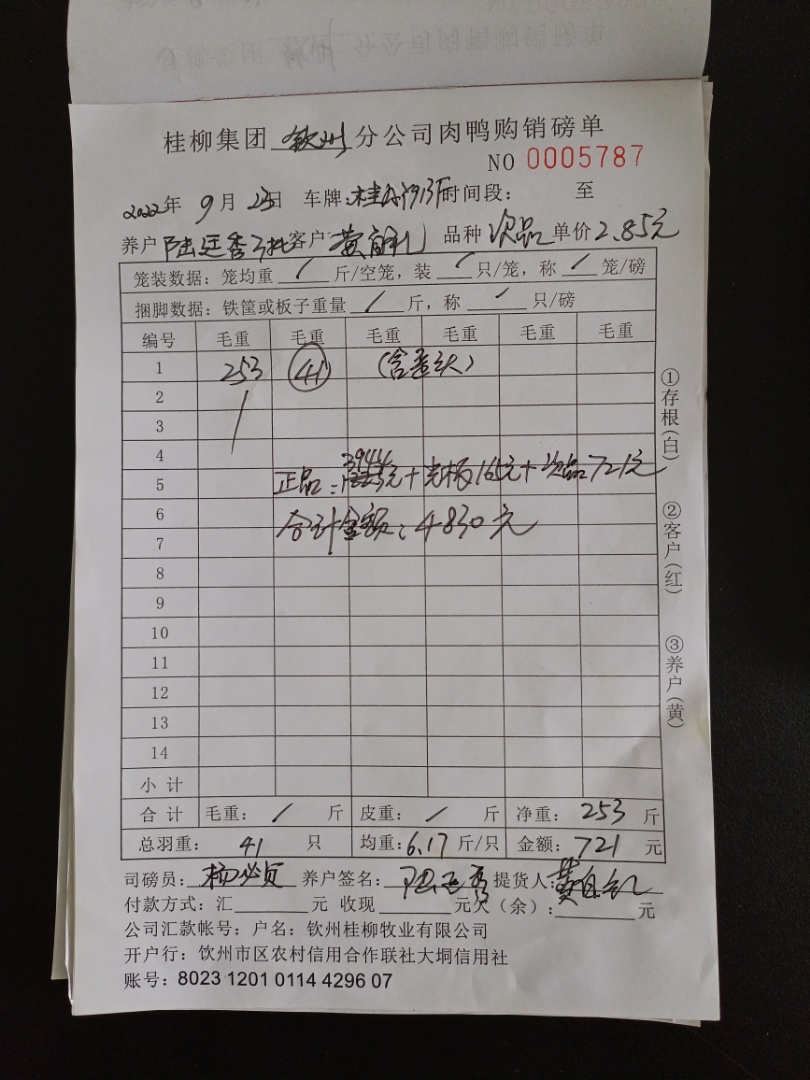 桂柳集团 钦州 分公司肉鸭购销磅单
NO 0005787
2022年 9月 23日 车牌: 时间段: 至
养户 陆廷秀 客户 黄 品种 次品 单价 2.85元
笼装数据: 笼均重 / 斤/空笼, 装 / 只/笼, 称 / 笼/磅
捆脚数据: 铁筐或板子重量 / 斤, 称 / 只/磅
编号 毛重 毛重 毛重 毛重 毛重 毛重
1 253 41
2
3
4
5 正品: 3944元+光板165元+次品721元
6 合计金额: 4830元
7
8
9
10
11
12
13
14
小计
合计 毛重: / 斤 皮重: / 斤 净重: 253 斤
总羽重: 41 只 均重: 6.17 斤/只 金额: 721 元
司磅员: 杨必贞 养户签名: 陆廷秀 提货人: 黄
付款方式: 汇 元 收现 元欠(余): 元
公司汇款帐号: 户名: 钦州桂柳牧业有限公司
开户行: 钦州市区农村信用合作联社大垌信用社
账号: 8023 1201 0114 4296 07
①存根(白)
②客户(红)
③养户(黄)